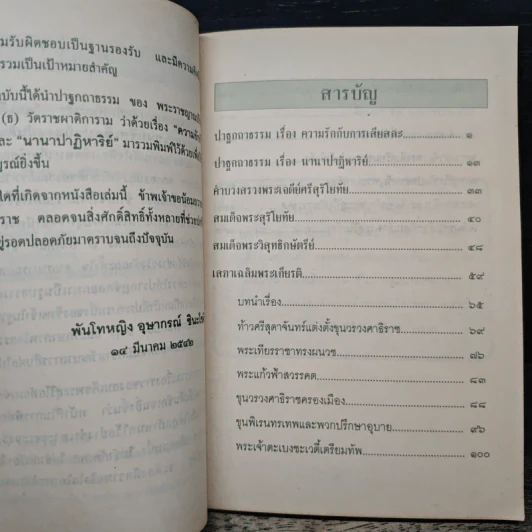 มรับผิดชอบเป็นฐานรองรับ และมีความ
รวมเป็นเป้าหมายสำคัญ
บับนี้ได้นำปาฐกถาธรรม ของ พระราช
(ธ) วัดราชผาติการาม ว่าด้วยเรื่อง
ละ "นานาปาฏิหาริย์" มารวมพิมพ์ไว้ด้วย
บูรณ์ยิ่งขึ้น
ใดที่เกิดจากหนังสือเล่มนี้ ข้าพเจ้าขอน้อม
ราช ตลอดจนสิ่งศักดิ์สิทธิ์ทั้งหลายที่ช่วย
ยู่รอดปลอดภัยมาตราบจนถึงปัจจุบัน
พันโทหญิง อุษากรณ์
๑๔ มีนาคม ๒๕๔๒
สารบัญ
ปาฐกถาธรรม เรื่อง ความรักกับการเสียสละ ๑
ปาฐกถาธรรม เรื่อง นานาปาฏิหาริย์ ๑๓
คำบวงสรวงพระเจดีย์ศรีสุริโยทัย ๓๓
สมเด็จพระสุริโยทัย ๔๐
สมเด็จพระวิสุทธิกษัตรีย์ ๔๘
เสภาเฉลิมพระเกียรติ ๕๙
บทนำเรื่อง ๖๕
ท้าวศรีสุดาจันทร์แต่งตั้งขุนวรวงศาธิราช ๖๙
พระเทียรราชาทรงผนวช ๗๖
พระแก้วฟ้าสวรรคต ๘๓
ขุนวรวงศาธิราชครองเมือง ๘๘
ขุนพิเรนทรเทพและพวกปรึกษาอุบาย ๙๖
พระเจ้าตะเบงชะเวตี้เตรียมทัพ ๑๐๐